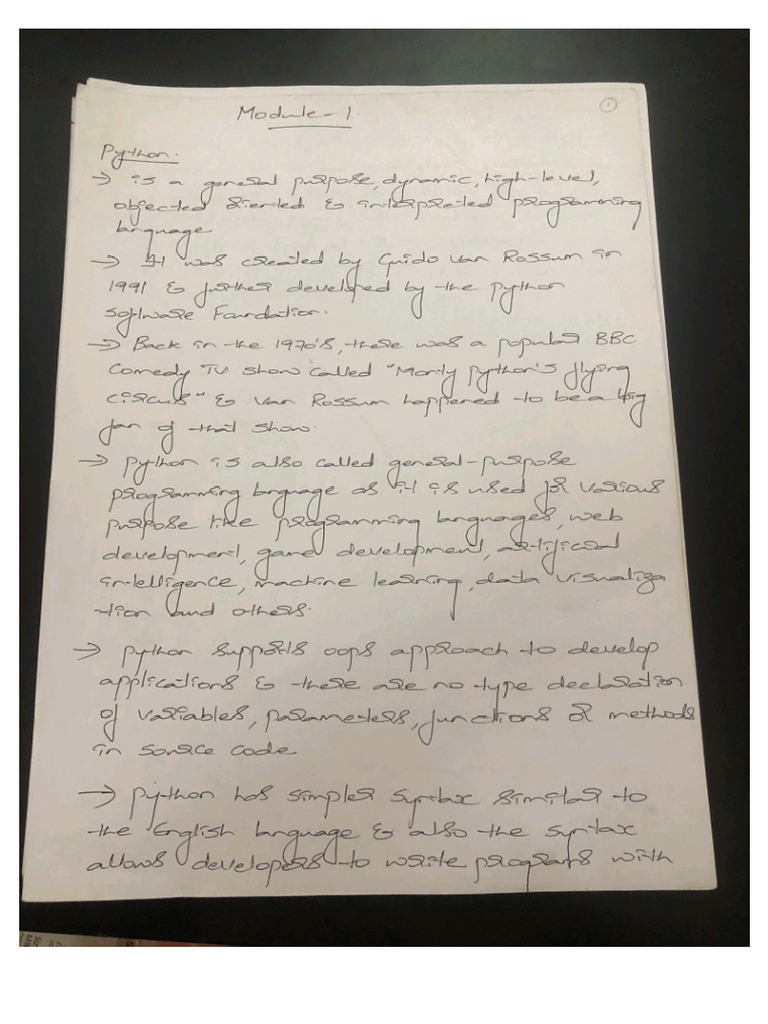 1
Module-1
Python.
→ is a general purpose, dynamic, high-level,
objected oriented & interpreted programming
language
→ It was created by Guido Van Rossum in
1991 & further developed by the python
software Foundation.
→ Back in the 1970's, there was a popular BBC
Comedy TV show called "Monty python's flying
circus" & Van Rossum happened to be a big
fan of that show.
→ python is also called general-purpose
programming language as it is used for various
purpose like programming languages, web
development, game development, artificial
intelligence, machine learning, data visualiza
-tion and others.
→ python supports oops approach to develop
applications & there are no type declaration
of variables, parameters, functions or methods
in source code
→ python has simpler syntax similar to
the English language & also the syntax
allows developers to write programs with